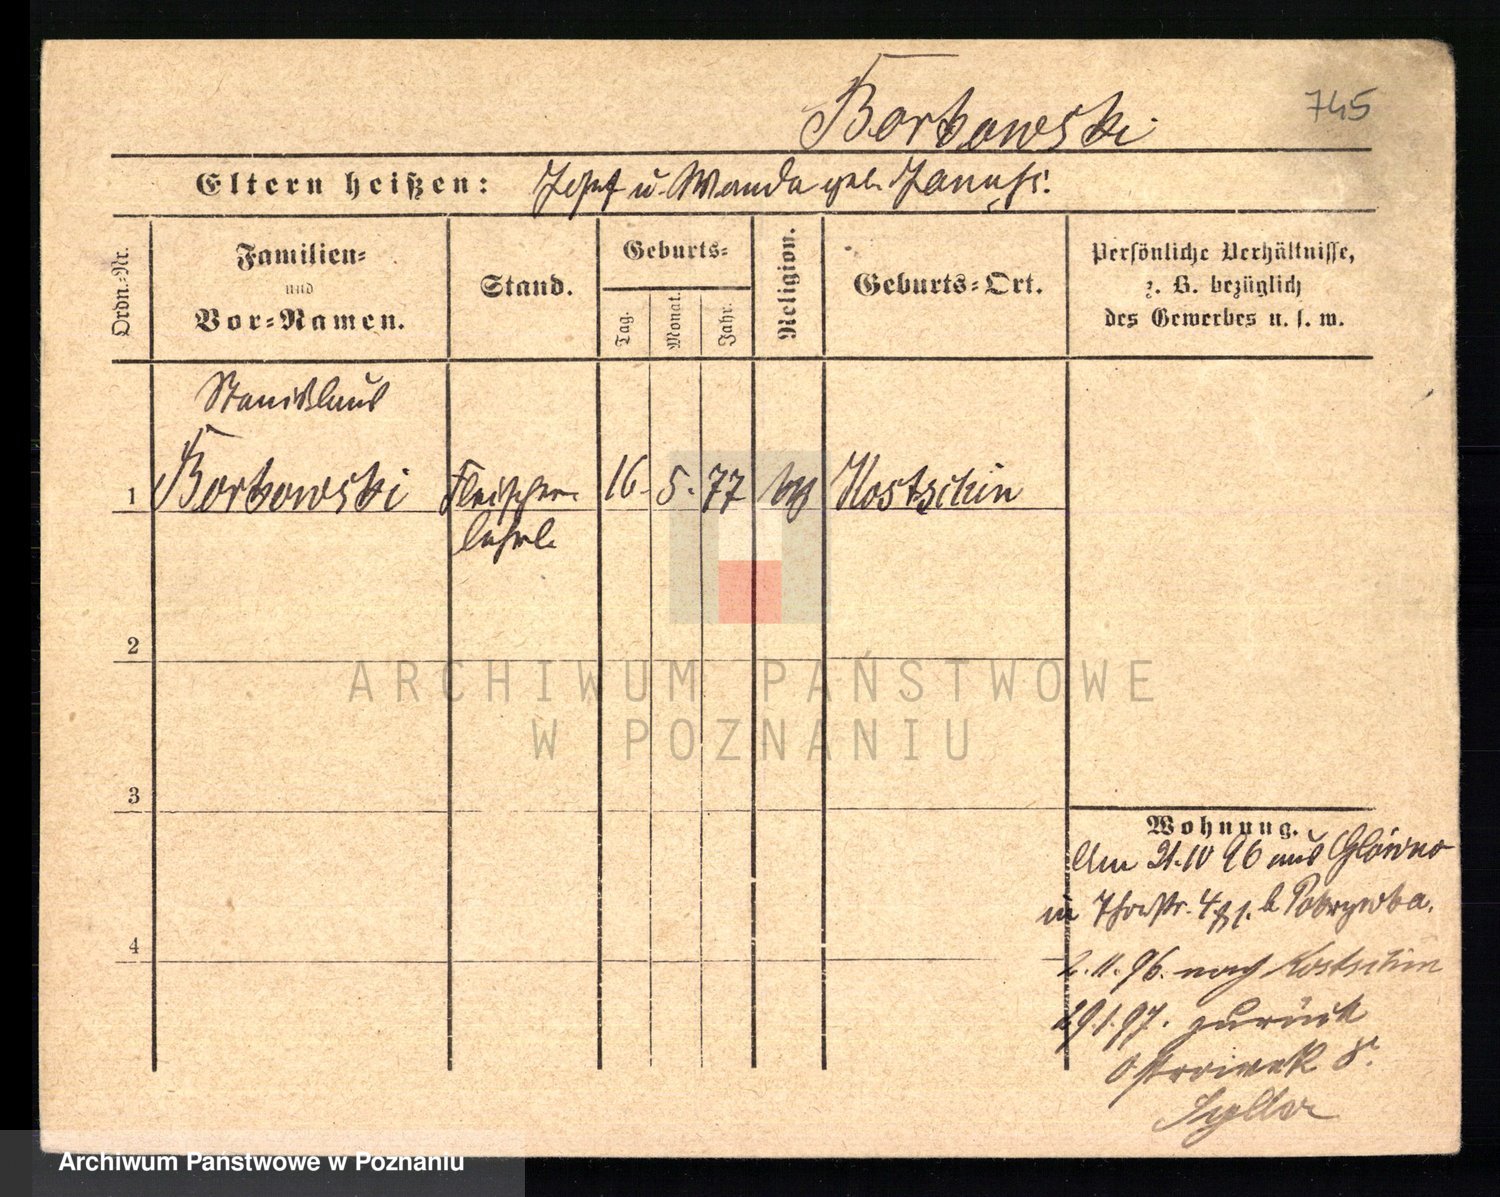 Borkowski
745
Eltern heißen: Josef u. Wanda geb. Janust.
Ordn.-Nr.
Familien-
und
Vor-Namen.
Stand.
Geburts-
Tag.
Monat.
Jahr.
Religion.
Geburts-Ort.
Persönliche Verhältnisse,
z. B. bezüglich
des Gewerbes u. s. w.
Stanislaus
1 Borkowski Fleischer- 16. 5. 77 Kostschin
lehrl.
2
3
4
Wohnung.
Am 21.10 96 aus Główno
in 4 b
2.11.96. nach Kostschin
29.1.97. zurück
Ostrowek 8.
ARCHIWUM PAŃSTWOWE
W POZNANIU
Archiwum Państwowe w Poznaniu